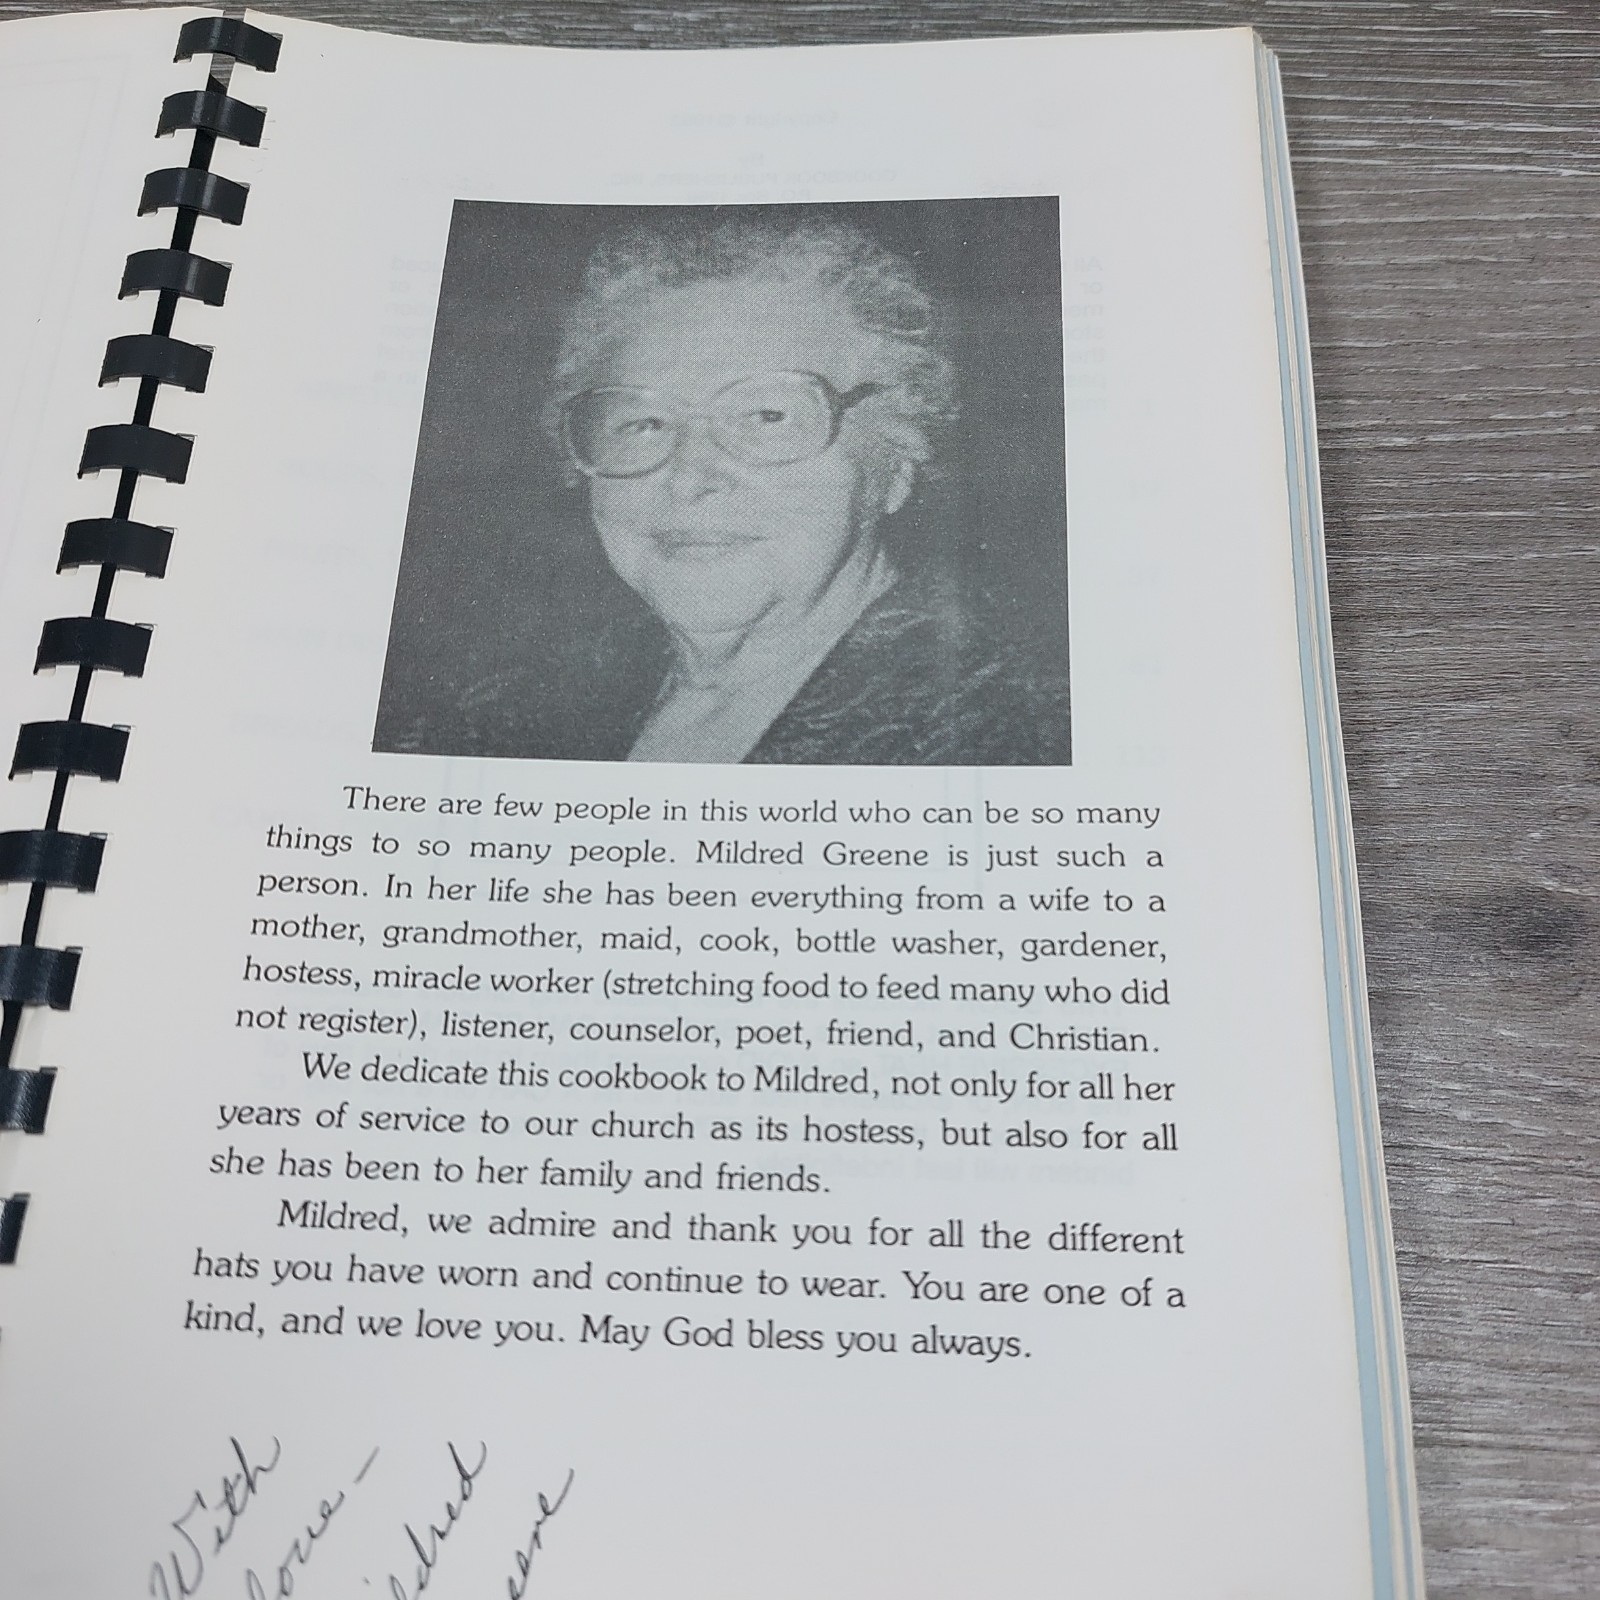 There are few people in this world who can be so many
things to so many people. Mildred Greene is just such a
person. In her life she has been everything from a wife to a
mother, grandmother, maid, cook, bottle washer, gardener,
hostess, miracle worker (stretching food to feed many who did
not register), listener, counselor, poet, friend, and Christian.
We dedicate this cookbook to Mildred, not only for all her
years of service to our church as its hostess, but also for all
she has been to her family and friends.
Mildred, we admire and thank you for all the different
hats you have worn and continue to wear. You are one of a
kind, and we love you. May God bless you always.
With
love –
ildred
eene